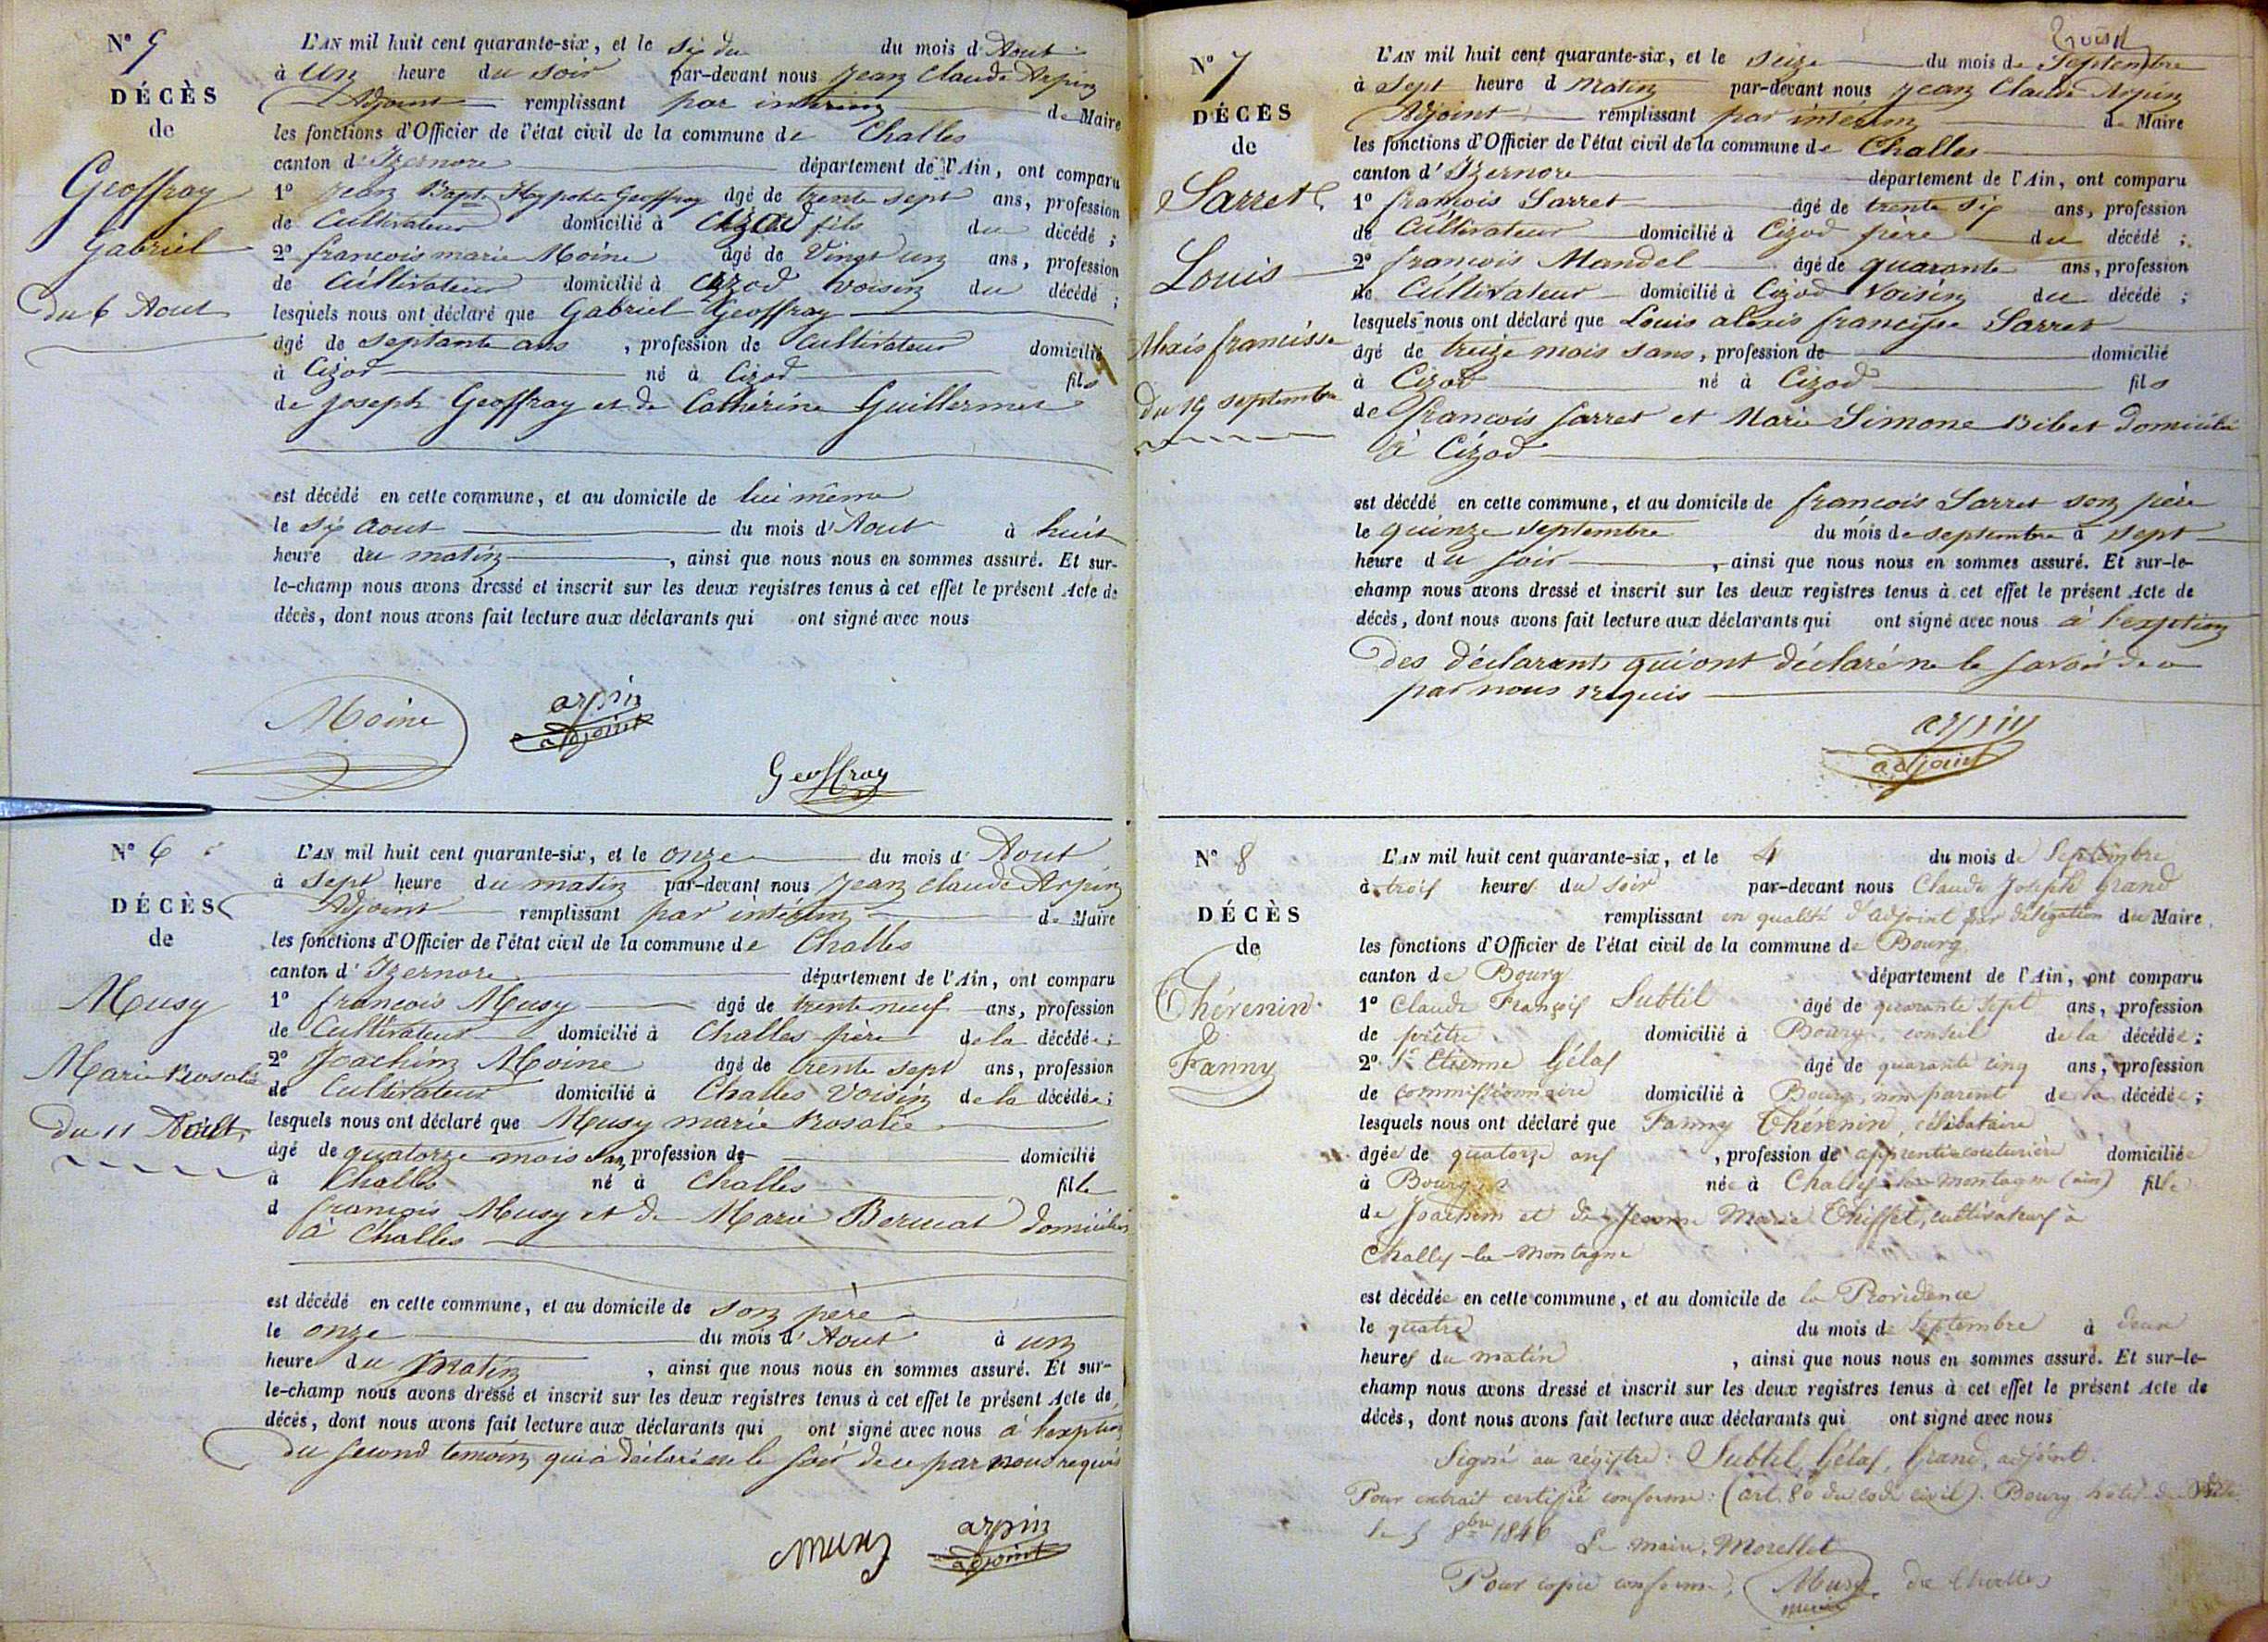 N° 5
DÉCÈS
de
Geoffray
Gabriel
du 6 Aout
L'AN mil huit cent quarante-six, et le six du du mois d'Aout
à Un heure du soir par-devant nous Jean Claude Arpin
Adjoint remplissant par interim de Maire
les fonctions d'Officier de l'état civil de la commune de Challes
canton d'Izernore département de l'Ain, ont comparu
1° Jean Bapte Hypolite Geoffray âgé de trente sept ans, profession
de Cultivateur domicilié à Cizod fils du décédé ;
2° francois marie Moine âgé de Vingt un ans, profession
de Cultivateur domicilié à Cizod voisin du décédé ;
lesquels nous ont déclaré que Gabriel Geoffray
âgé de septante ans , profession de Cultivateur domicilié
à Cizod né à Cizod fils
de Joseph Geoffray et de Catherine Guillermet
est décédé en cette commune, et au domicile de lui même
le six aout du mois d'Aout à huit
heure du matin , ainsi que nous nous en sommes assuré. Et sur-
le-champ nous avons dressé et inscrit sur les deux registres tenus à cet effet le présent Acte de
décès, dont nous avons fait lecture aux déclarants qui ont signé avec nous
Moine arpin
adjoint
Geoffray
N° 6
DÉCÈS
de
Musy
Marie Rosalie
Du 11 Août
L'AN mil huit cent quarante-six, et le onze du mois d'Aout
à sept heure du matin par-devant nous Jean claude Arpin
Adjoint remplissant par intérim de Maire
les fonctions d'Officier de l'état civil de la commune de Challes
canton d'Izernore département de l'Ain, ont comparu
1° francois Musy âgé de trente neuf ans, profession
de Cultivateur domicilié à Challes père de la décédée ;
2° Joachim Moine âgé de trente sept ans, profession
de Cultivateur domicilié à Challes Voisin de la décédée ;
lesquels nous ont déclaré que Musy marie Rosalie
âgé de quatorze mois san, profession de domicilié
à Challes né à Challes fille
d françois Musy et de Marie Bernat domiciliés
à Challes
est décédé en cette commune, et au domicile de son père
le onze du mois d'Aout à un
heure du matin , ainsi que nous nous en sommes assuré. Et sur-
le-champ nous avons dressé et inscrit sur les deux registres tenus à cet effet le présent Acte de
décès, dont nous avons fait lecture aux déclarants qui ont signé avec nous à l'exption
du second temoin qui à déclaré ne le savoir de ce par nous requis
musy arpin
adjoint
N° 7
DÉCÈS
de
Sarret
Louis
Alexis francisse
Du 15 septembre
L'AN mil huit cent quarante-six, et le seize du mois de Septembre
à sept heure d matin par-devant nous Jean Claude Arpin
Adjoint remplissant par intérim de Maire
les fonctions d'Officier de l'état civil de la commune de Challes
canton d'Izernore département de l'Ain, ont comparu
1° françois Sarret âgé de trente six ans, profession
de Cultivateur domicilié à Cizod père du décédé ;
2° francois Mandel âgé de quarante ans, profession
de Cultivateur domicilié à Cizod Voisin du décédé ;
lesquels nous ont déclaré que Louis alexis francisse Sarret
âgé de treize mois sans, profession de domicilié
à Cizod né à Cizod fils
de francois Sarret et Marie Simone Bibet domicilié
à Cizod
est décédé en cette commune, et au domicile de francois Sarret son père
le quinze septembre du mois de septembre à sept
heure du soir , ainsi que nous nous en sommes assuré. Et sur-le-
champ nous avons dressé et inscrit sur les deux registres tenus à cet effet le présent Acte de
décès, dont nous avons fait lecture aux déclarants qui ont signé avec nous à l'exption
des déclarants qui ont déclaré ne le savoir de ce
par nous requis
arpin
adjoint
N° 8
DÉCÈS
de
Thérenin
Fanny
L'AN mil huit cent quarante-six, et le 4 du mois de Septembre
à trois heures du soir par-devant nous Claude Joseph Grand
remplissant en qualité d'adjoint par délégation du Maire
les fonctions d'Officier de l'état civil de la commune de Bourg
canton de Bourg département de l'Ain, ont comparu
1° Claude François Subtil âgé de quarante sept ans, profession
de prêtre domicilié à Bourg, conseil de la décédée ;
2° Etienne Gélas âgé de quarante cinq ans, profession
de commissionnaire domicilié à Bourg, non parent de la décédée ;
lesquels nous ont déclaré que Fanny Thérenin, célibataire
âgée de quatorze ans , profession de apprentie couturière domiciliée
à Bourg née à Challes la Montagne (ain) fille
de Joachim et de Jeanne Marie Thiffet, cultivateurs à
Challes-la-Montagne
est décédée en cette commune, et au domicile de la Providence
le quatre du mois de Septembre à deux
heures du matin , ainsi que nous nous en sommes assuré. Et sur-le-
champ nous avons dressé et inscrit sur les deux registres tenus à cet effet le présent Acte de
décès, dont nous avons fait lecture aux déclarants qui ont signé avec nous
Signé au régistre : Subtil, Gélas, Grand, adjoint.
Pour extrait certifié conforme : (art. 80 du code civil). Bourg hotel de Ville
le 5 8bre 1846 Le maire, Morellet
Pour copie conforme, Musy de Challes